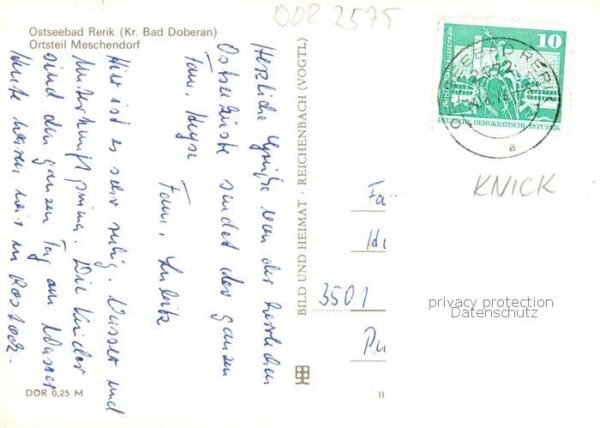 DDR 2575
Ostseebad Rerik (Kr. Bad Doberan)
Ortsteil Meschendorf
Herzliche Grüße von der herrlichen
Ostseeküste sendet der ganzen
Fam. Heyse Fam.
Hier ist es sehr ruhig. Wasser und
Unterkunft prima. Die Kinder
sind den ganzen Tag am Wasser
Heute waren wir in Rostock.
DDR 0,25 M
BILD UND HEIMAT · REICHENBACH (VOGTL)
10
DEUTSCHE DEMOKRATISCHE REPUBLIK
OSTSEEBAD RERIK
a
KNICK
Fa
3501
privacy protection
Datenschutz
II